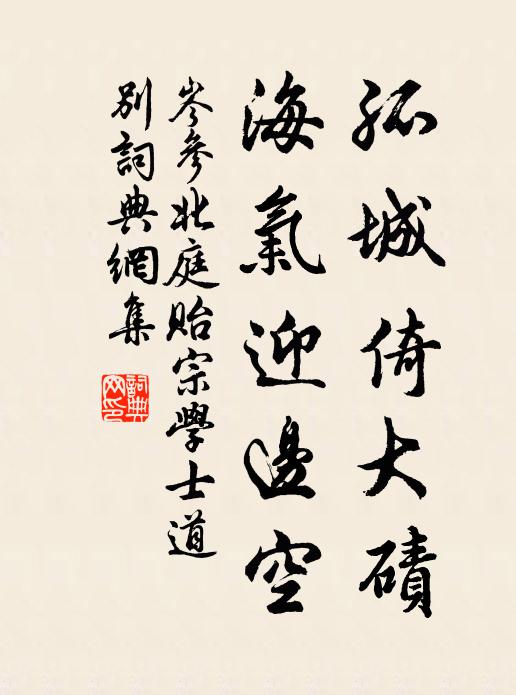 孤城倚大磧
海氣迎邊空
岑參北庭貽宗學士道
別詞典網集
詞典網印